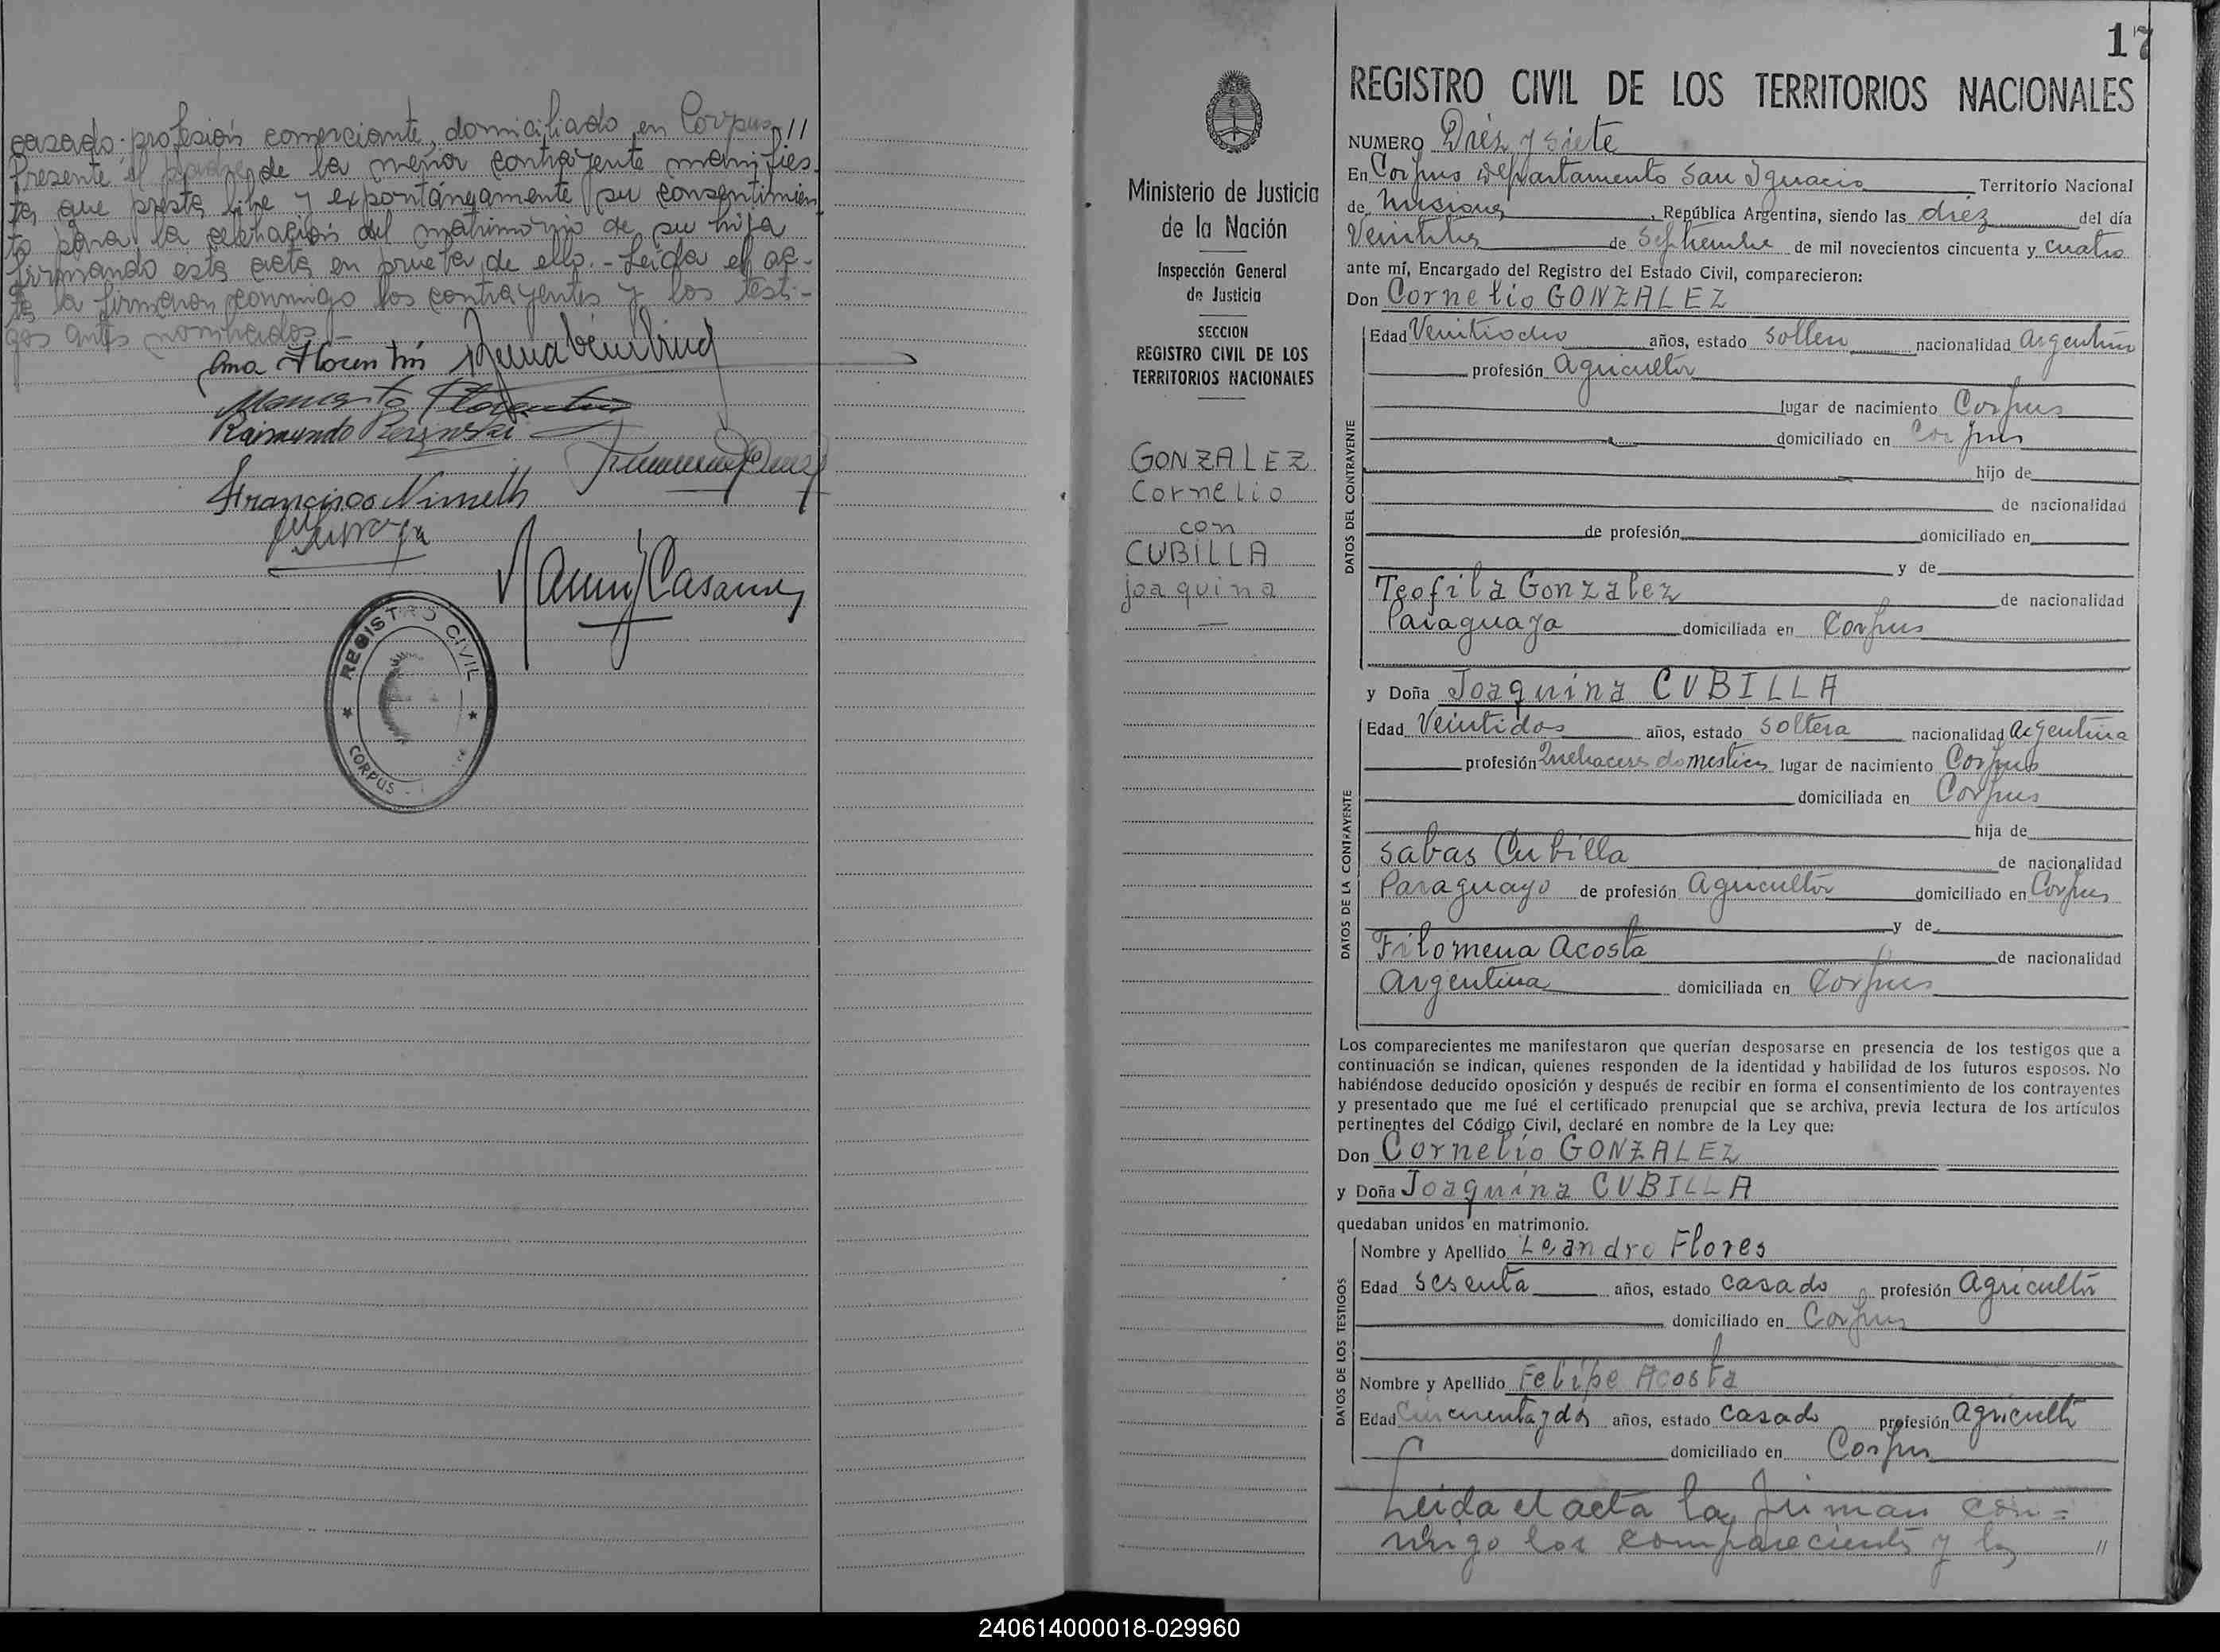 casado profesión comerciante, domiciliado en Corpus //
Presente el padre de la menor contrayente manifies-
ta, que presta libre y expontáneamente su consentimien-
to para la celebración del matrimonio de su hija
firmando esta acta en prueba de ello. - Leída el ac-
ta la firmaron conmigo los contrayentes y los testi-
gos antes nombrados
Ana Florentin
Florentin
Raimundo
Francisco Nimeth
REGISTRO CIVIL
CORPUS
Ministerio de Justicia
de la Nación
Inspección General
de Justicia
SECCION
REGISTRO CIVIL DE LOS
TERRITORIOS NACIONALES
GONZALEZ
Cornelio
con
CUBILLA
joaquina
17
REGISTRO CIVIL DE LOS TERRITORIOS NACIONALES
NUMERO Diéz y siete
En Corpus departamento San Ignacio Territorio Nacional
de Misiones, República Argentina, siendo las diéz del día
Veintitres de Septiembre de mil novecientos cincuenta y cuatro
ante mí, Encargado del Registro del Estado Civil, comparecieron:
Don Cornelio GONZALEZ
DATOS DEL CONTRAYENTE
Edad Veintiocho años, estado soltero nacionalidad argentino
profesión agricultor
lugar de nacimiento Corpus
domiciliado en Corpus
hijo de
de nacionalidad
de profesión domiciliado en
y de
Teofila Gonzalez de nacionalidad
Paraguaya domiciliada en Corpus
y Doña Joaquina CUBILLA
DATOS DE LA CONTRAYENTE
Edad Veintidos años, estado soltera nacionalidad argentina
profesión Quehaceres domesticos lugar de nacimiento Corpus
domiciliada en Corpus
hija de
Sabas Cubilla de nacionalidad
Paraguayo de profesión agricultor domiciliado en Corpus
y de
Filomena Acosta de nacionalidad
argentina domiciliada en Corpus
Los comparecientes me manifestaron que querían desposarse en presencia de los testigos que a
continuación se indican, quienes responden de la identidad y habilidad de los futuros esposos. No
habiéndose deducido oposición y después de recibir en forma el consentimiento de los contrayentes
y presentado que me fué el certificado prenupcial que se archiva, previa lectura de los artículos
pertinentes del Código Civil, declaré en nombre de la Ley que:
Don Cornelio GONZALEZ
y Doña Joaquina CUBILLA
quedaban unidos en matrimonio.
DATOS DE LOS TESTIGOS
Nombre y Apellido Leandro Flores
Edad sesenta años, estado casado profesión agricultor
domiciliado en Corpus
Nombre y Apellido Felipe Acosta
Edad Cincuenta y dos años, estado casado profesión agricultor
domiciliado en Corpus
Leida el acta la firman con =
migo los comparecientes y los //
240614000018-029960